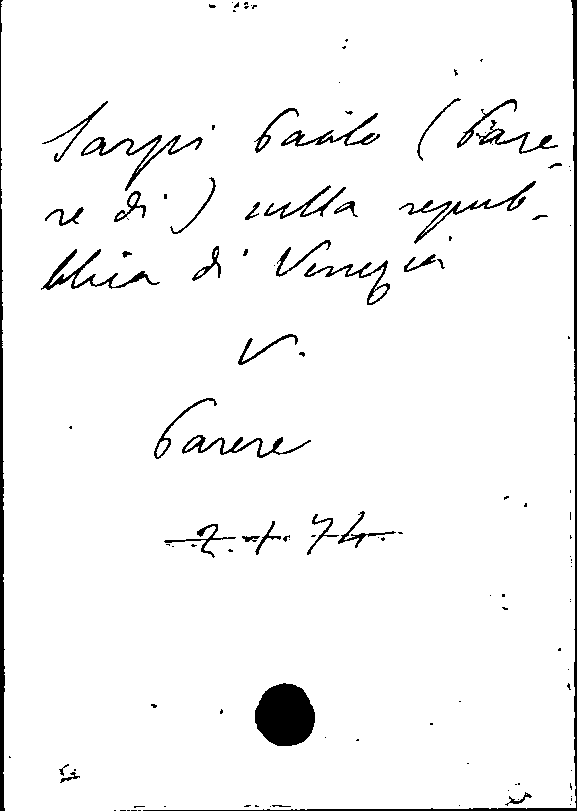 Sarpi Paolo (Pare-
re di) sulla repub-
blica di Venezia
V.
Parere
2. 1. 74